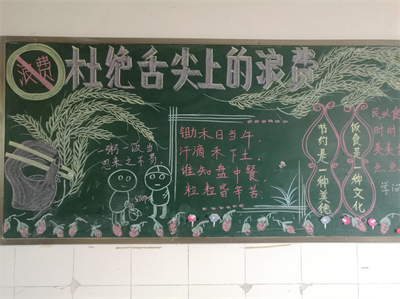 浪费
杜绝舌尖上的浪费
一粥一饭当
思来之不易
锄禾日当午
汗滴禾下土
谁知盘中餐
粒粒皆辛苦
节约是一种美德
饭食是一种文化
stop